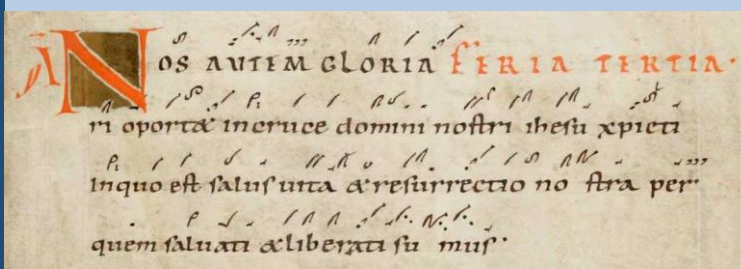 A NOS AVTEM GLORIA FERIA TERTIA·
ri oport& incruce domini noſtri iheſu xpicti
Inquo eſt ſaluſ uita & reſurrectio no ſtra per
quem ſaluati & liberati ſu muſ·